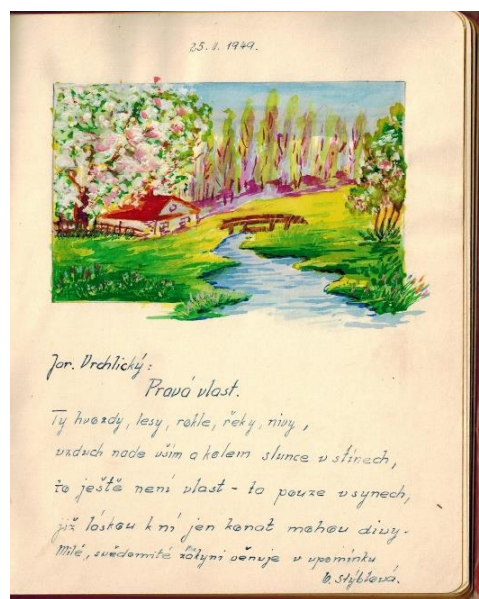 25. II. 1949.
Jar. Vrchlický:
Pravá vlast.
Ty hvozdy, lesy, rokle, řeky, nivy,
vzduch nade vším a kolem slunce v stínech,
to ještě není vlast - to pouze v synech,
již láskou k ní jen konat mohou divy.
Milé, svědomité žákyni věnuje v upomínku
Stýblová.